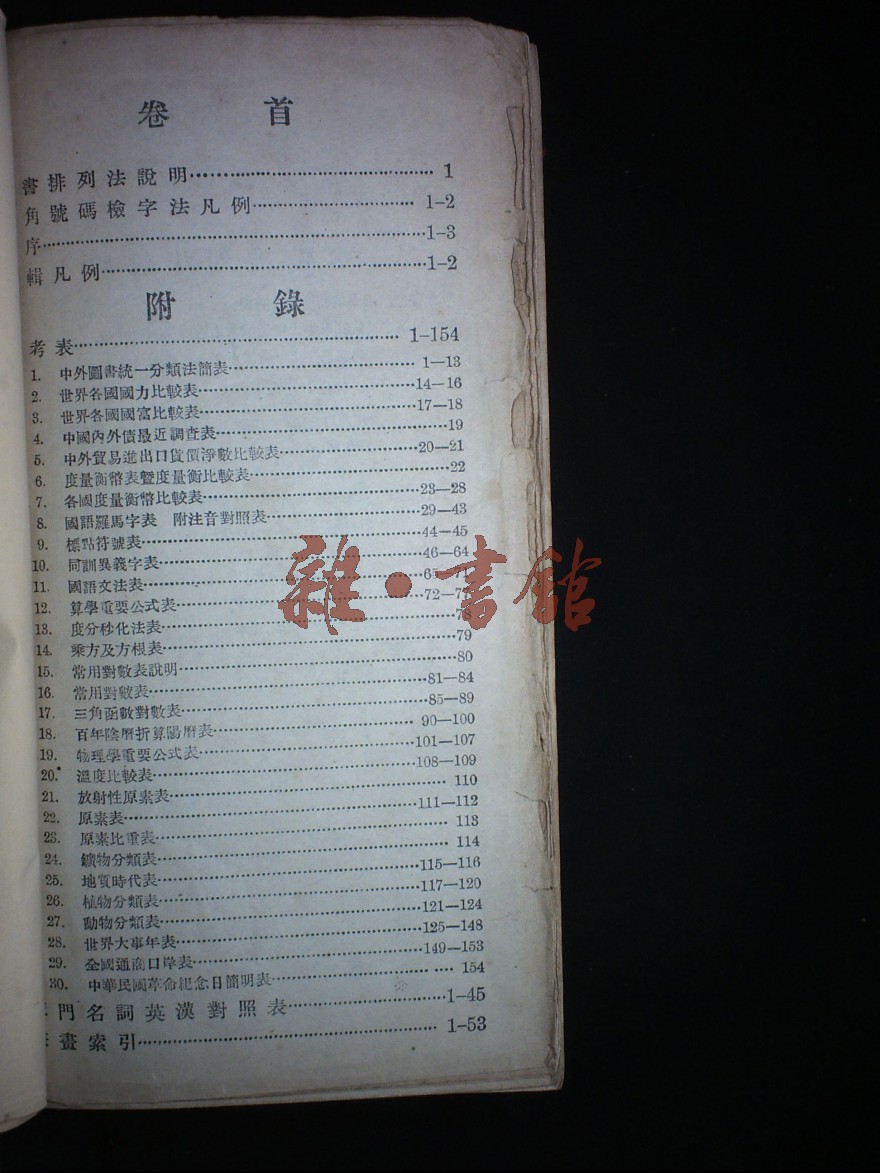 卷 首
書排列法說明 1
角號碼檢字法凡例 1-2
序 1-3
輯凡例 1-2
附 錄
考表 1-154
1. 中外圖書統一分類法簡表 1—13
2. 世界各國國力比較表 14—16
3. 世界各國國富比較表 17—18
4. 中國內外債最近調查表 19
5. 中外貿易進出口貨價淨數比較表 20—21
6. 度量衡幣表暨度量衡比較表 22
7. 各國度量衡幣比較表 23—28
8. 國語羅馬字表 附注音對照表 29—43
9. 標點符號表 44—45
10. 同訓異義字表 46—64
11. 國語文法表 65—71
12. 算學重要公式表 72—7
13. 度分秒化法表 78
14. 乘方及方根表 79
15. 常用對數表說明 80
16. 常用對數表 81—84
17. 三角函數對數表 85—89
18. 百年陰曆折算陽曆表 90—100
19. 物理學重要公式表 101—107
20. 溫度比較表 108—109
21. 放射性原素表 110
22. 原素表 111—112
23. 原素比重表 113
24. 鑛物分類表 114
25. 地質時代表 115—116
26. 植物分類表 117—120
27. 動物分類表 121—124
28. 世界大事年表 125—148
29. 全國通商口岸表 149—153
30. 中華民國革命紀念日簡明表 154
門名詞英漢對照表 1-45
畫索引 1-53
雜·書館